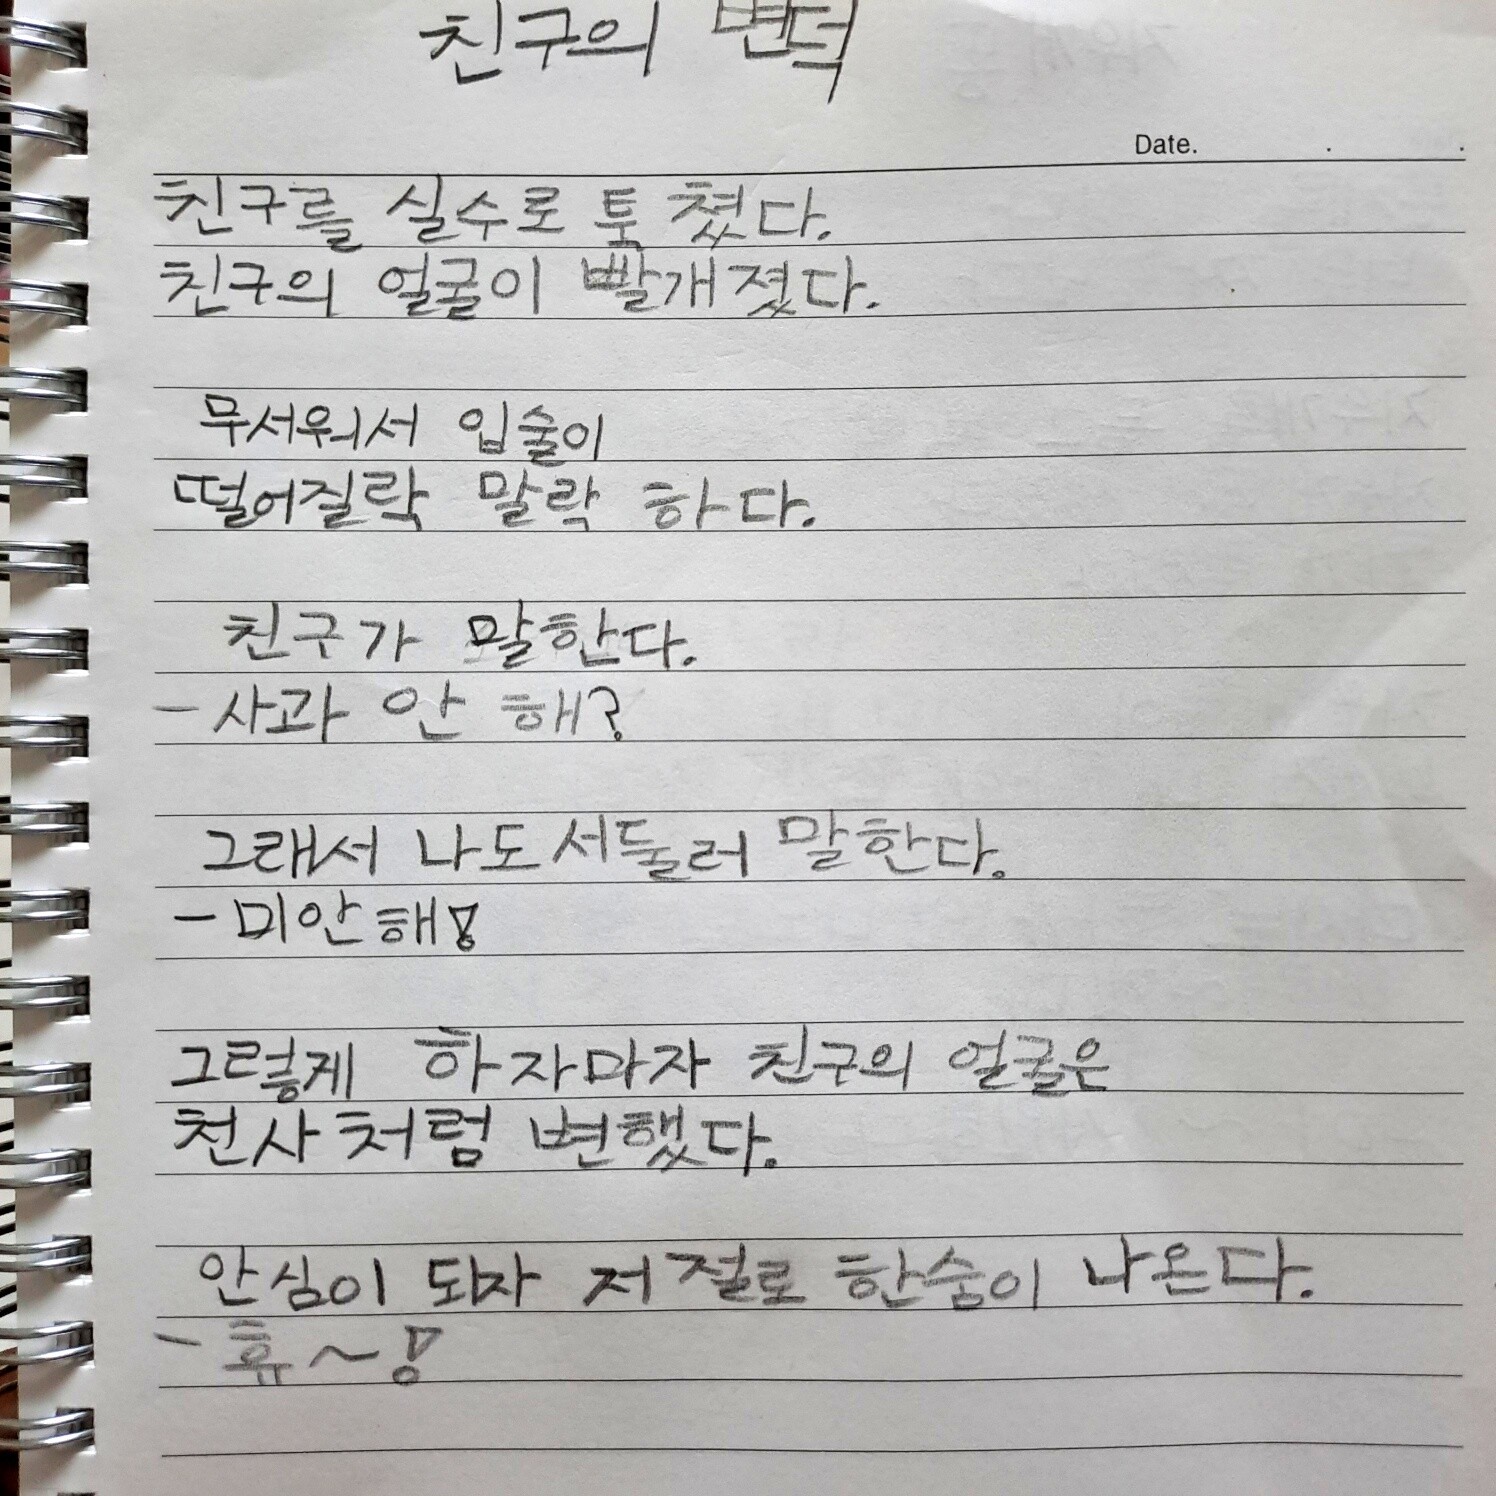 친구의 변덕
Date.
친구를 실수로 툭 쳤다.
친구의 얼굴이 빨개졌다.
무서워서 입술이
떨어질락 말락 하다.
친구가 말한다.
- 사과 안 해?
그래서 나도 서둘러 말한다.
- 미안해!
그렇게 하자마자 친구의 얼굴은
천사처럼 변했다.
안심이 되자 저절로 한숨이 나온다.
- 휴~!